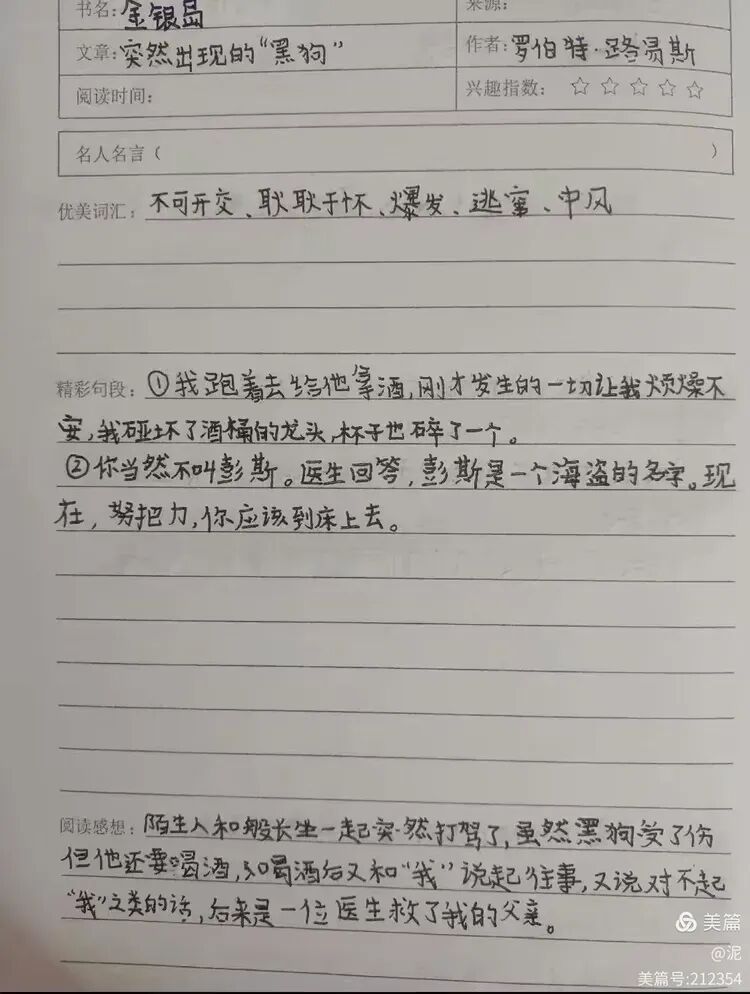 书名: 金银岛 来源:
文章: 突然出现的“黑狗” 作者: 罗伯特·路易斯
阅读时间: 兴趣指数: ☆ ☆ ☆ ☆ ☆
名人名言 ( )
优美词汇: 不可开交、耿耿于怀、爆发、逃窜、中风
精彩句段: ①我跑着去给他拿酒,刚才发生的一切让我烦燥不
安,我碰坏了酒桶的龙头,杯子也碎了一个。
②你当然不叫彭斯。医生回答,彭斯是一个海盗的名字。现
在,努把力,你应该到床上去。
阅读感想: 陌生人和船长坐一起突然打驾了,虽然黑狗受了伤
但他还要喝酒,喝酒后又和“我”说起往事,又说对不起
“我”之类的话,后来是一位医生救了我的父亲。
美篇
@泥
美篇号:212354